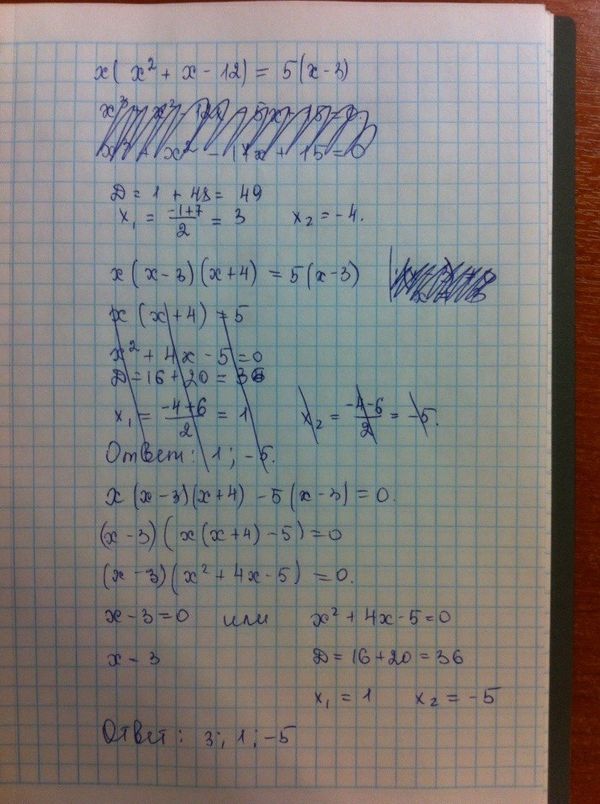 x( x² + x - 12) = 5(x-3)
x³ + x² - 17x + 15 = 0
D = 1 + 48 = 49
x₁ = (-1+7)/2 = 3 x₂ = -4.
x(x-3)(x+4) = 5(x-3)
x(x+4) = 5
x² + 4x - 5 = 0
D = 16 + 20 = 36
x₁ = (-4+6)/2 = 1 x₂ = (-4-6)/2 = -5.
Ответ: 1; -5.
x(x-3)(x+4) - 5(x-3) = 0.
(x-3)(x(x+4)-5) = 0
(x-3)(x² + 4x - 5) = 0.
x - 3 = 0 или x² + 4x - 5 = 0
x - 3 D = 16 + 20 = 36
x₁ = 1 x₂ = -5
Ответ: 3; 1; -5